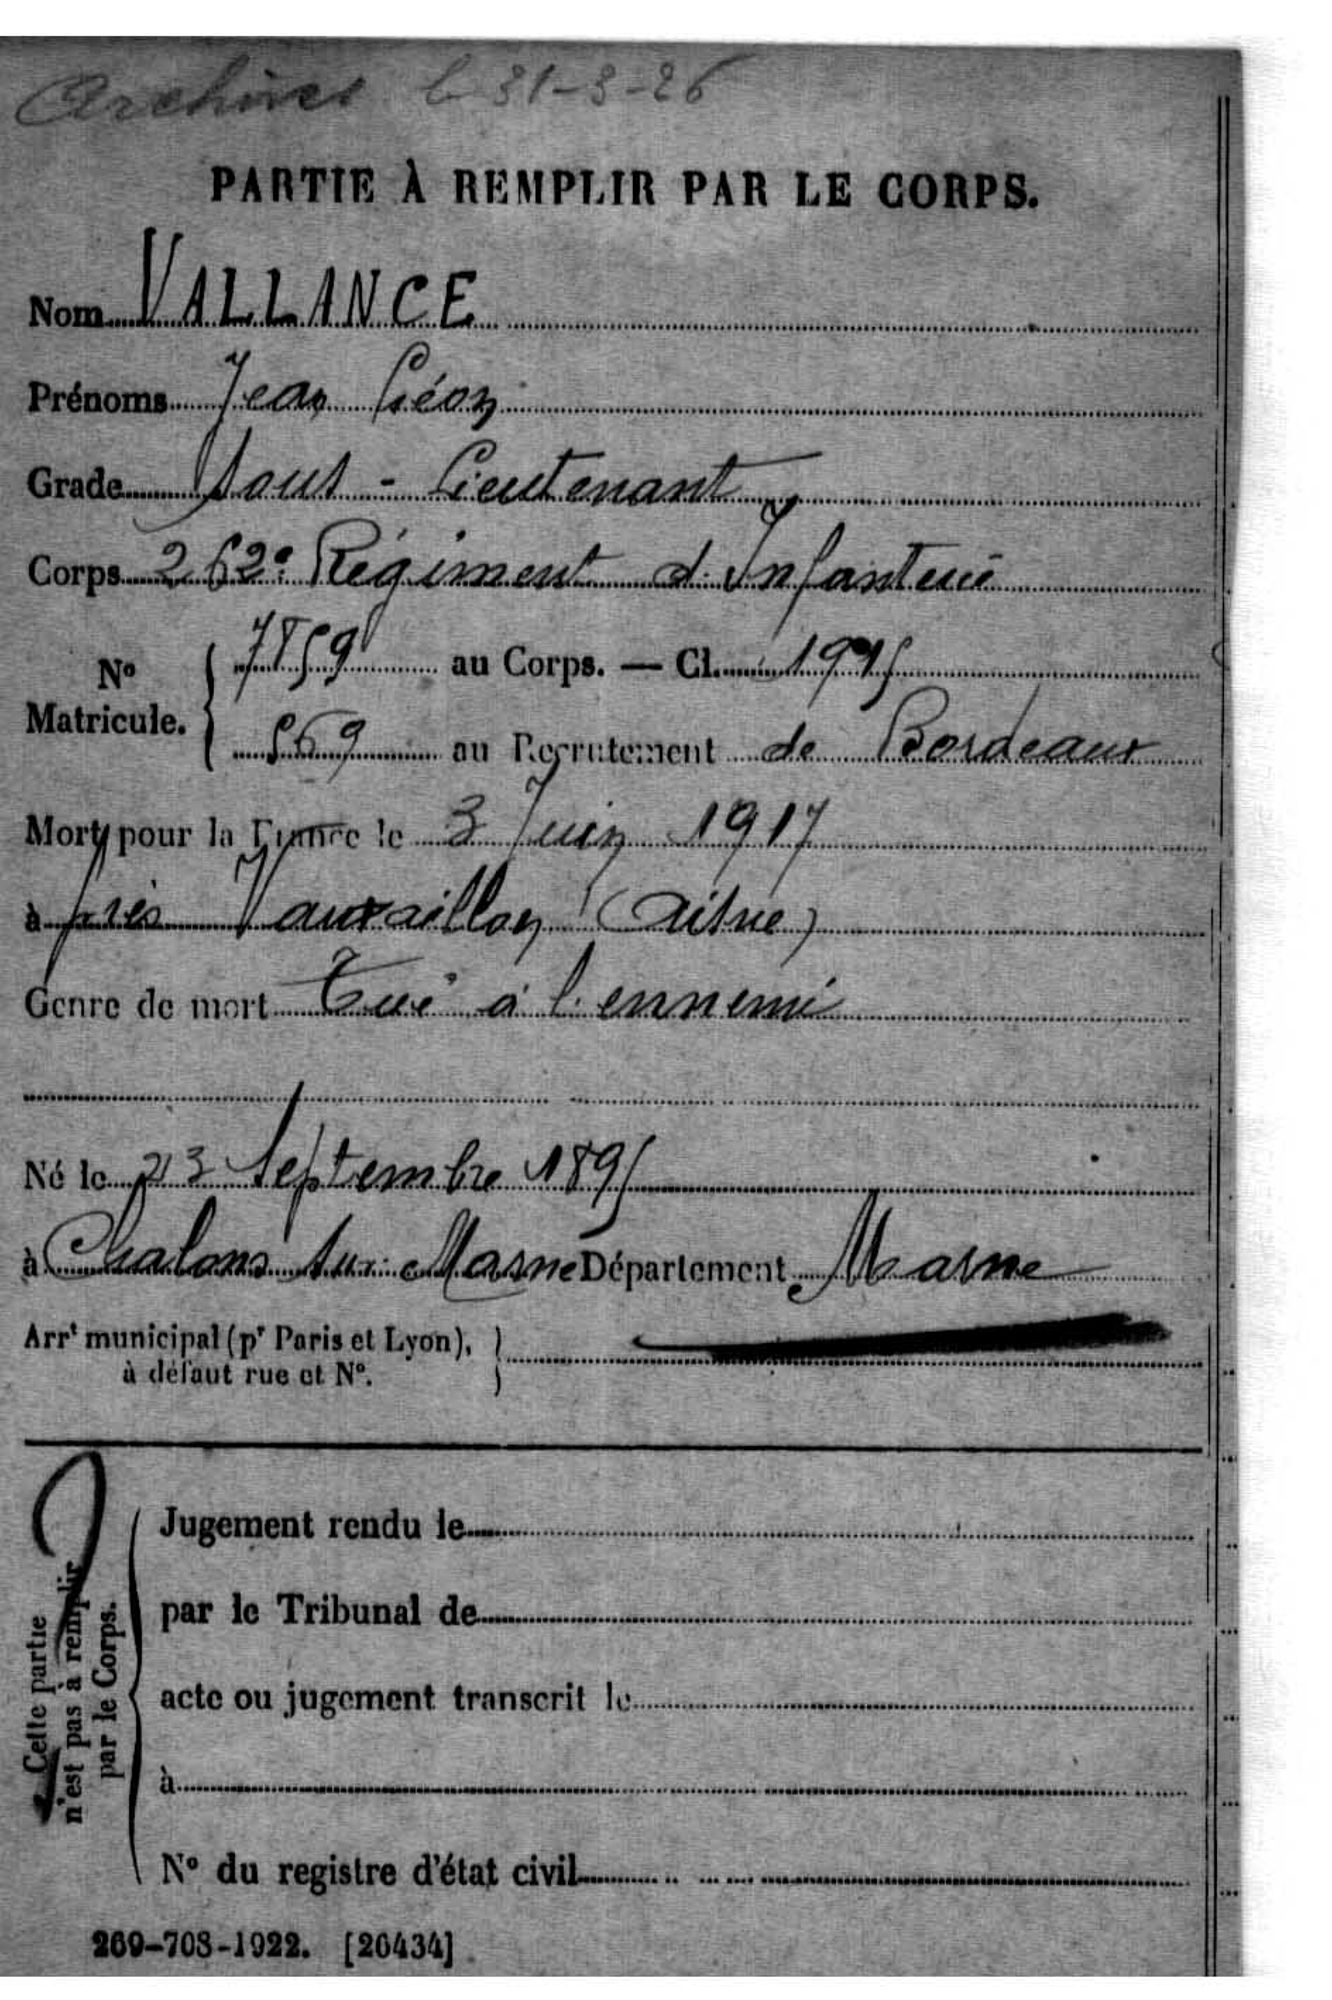 Archives le 31-3-26
PARTIE À REMPLIR PAR LE CORPS.
Nom VALLANCE
Prénoms Jean Léon
Grade Sous-Lieutenant
Corps 262e Régiment d'Infanterie
No Matricule. { 7859 au Corps. — Cl. 1915
569 au Recrutement de Bordeaux
Mort pour la France le 3 Juin 1917
à près Vauxaillon (Aisne)
Genre de mort Tué à l'ennemi
Né le 23 Septembre 1895
à Chalons sur Marne Département Marne
Arrt municipal (pr Paris et Lyon),
à défaut rue et No.
Cette partie
n'est pas à remplir
par le Corps.
Jugement rendu le
par le Tribunal de
acte ou jugement transcrit le
à
No du registre d'état civil
269-708-1922. [26434]